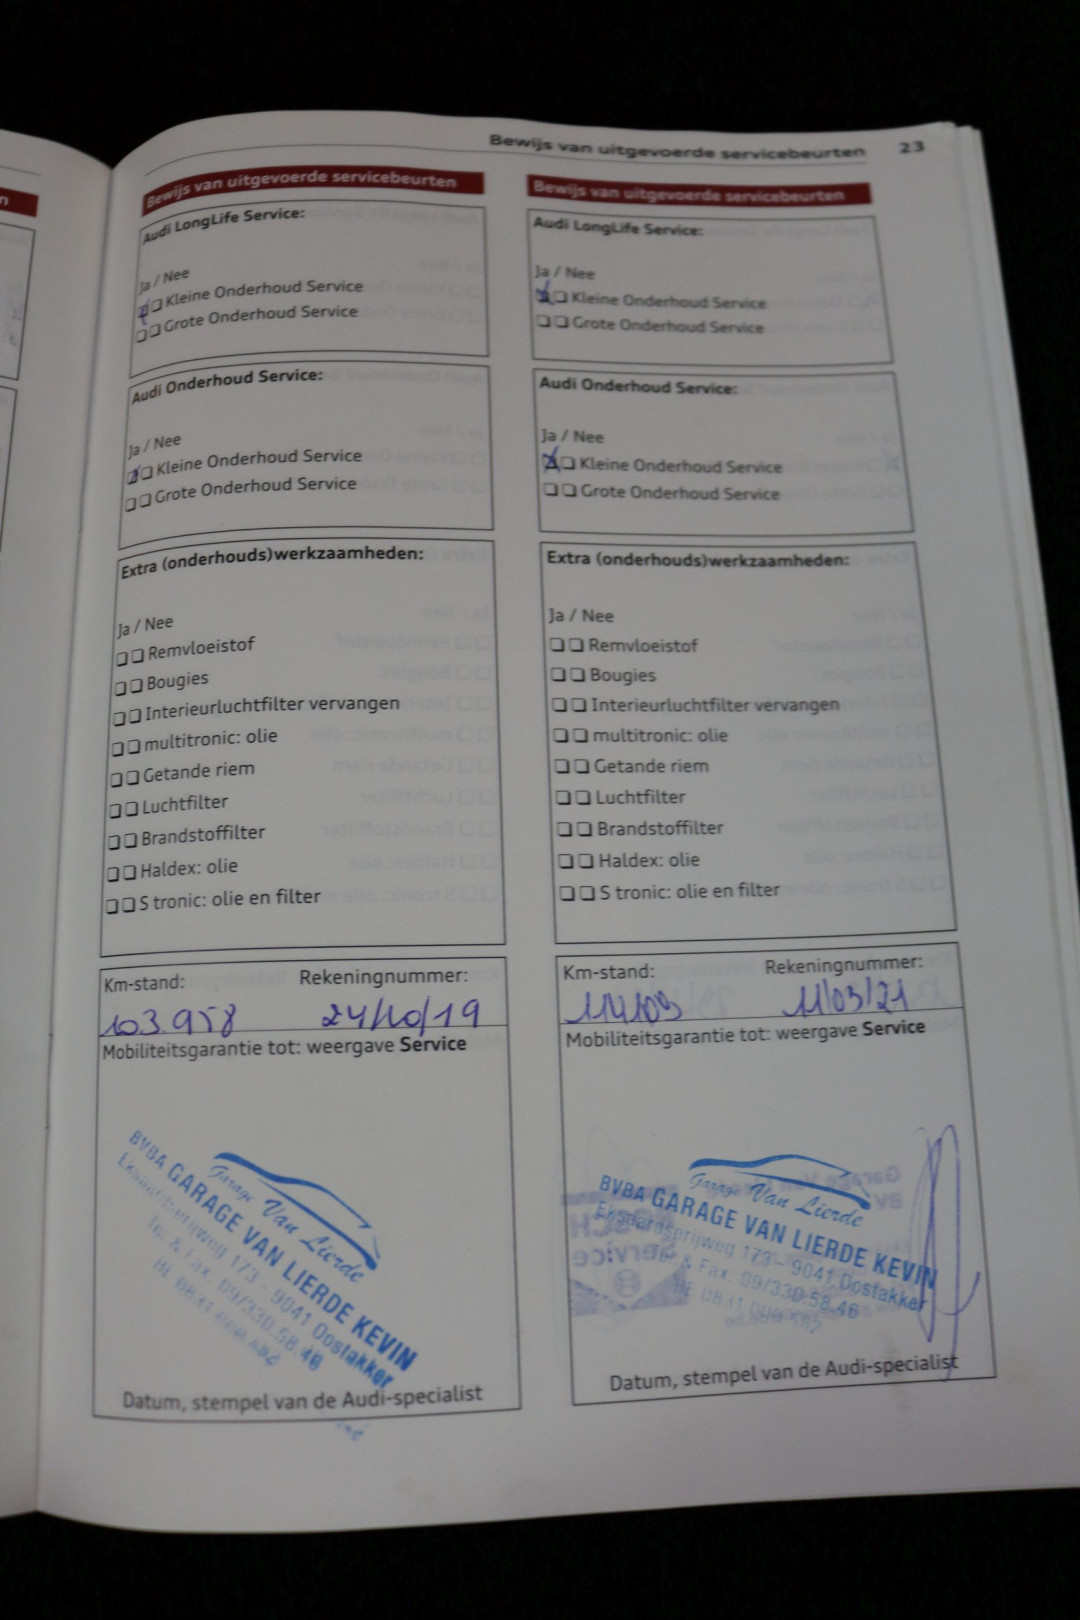 Bewijs van uitgevoerde servicebeurten 23
n
Bewijs van uitgevoerde servicebeurten
Audi LongLife Service:
Ja / Nee
Kleine Onderhoud Service
Grote Onderhoud Service
Audi Onderhoud Service:
Ja / Nee
Kleine Onderhoud Service
Grote Onderhoud Service
Extra (onderhouds)werkzaamheden:
Ja / Nee
Remvloeistof
Bougies
Interieurluchtfilter vervangen
multitronic: olie
Getande riem
Luchtfilter
Brandstoffilter
Haldex: olie
S tronic: olie en filter
Km-stand: Rekeningnummer:
103.958 24/10/19
Mobiliteitsgarantie tot: weergave Service
Garage Van Lierde
BVBA GARAGE VAN LIERDE KEVIN
Eksaardserijweg 173 - 9041 Oostakker
Tel. & Fax. 09/330.58.46
Datum, stempel van de Audi-specialist
Bewijs van uitgevoerde servicebeurten
Audi LongLife Service:
Ja / Nee
Kleine Onderhoud Service
Grote Onderhoud Service
Audi Onderhoud Service:
Ja / Nee
Kleine Onderhoud Service
Grote Onderhoud Service
Extra (onderhouds)werkzaamheden:
Ja / Nee
Remvloeistof
Bougies
Interieurluchtfilter vervangen
multitronic: olie
Getande riem
Luchtfilter
Brandstoffilter
Haldex: olie
S tronic: olie en filter
Km-stand: Rekeningnummer:
11/03/21
Mobiliteitsgarantie tot: weergave Service
Garage Van Lierde
BVBA GARAGE VAN LIERDE KEVIN
Eksaardserijweg 173 - 9041 Oostakker
Tel. & Fax. 09/330.58.46
Datum, stempel van de Audi-specialist